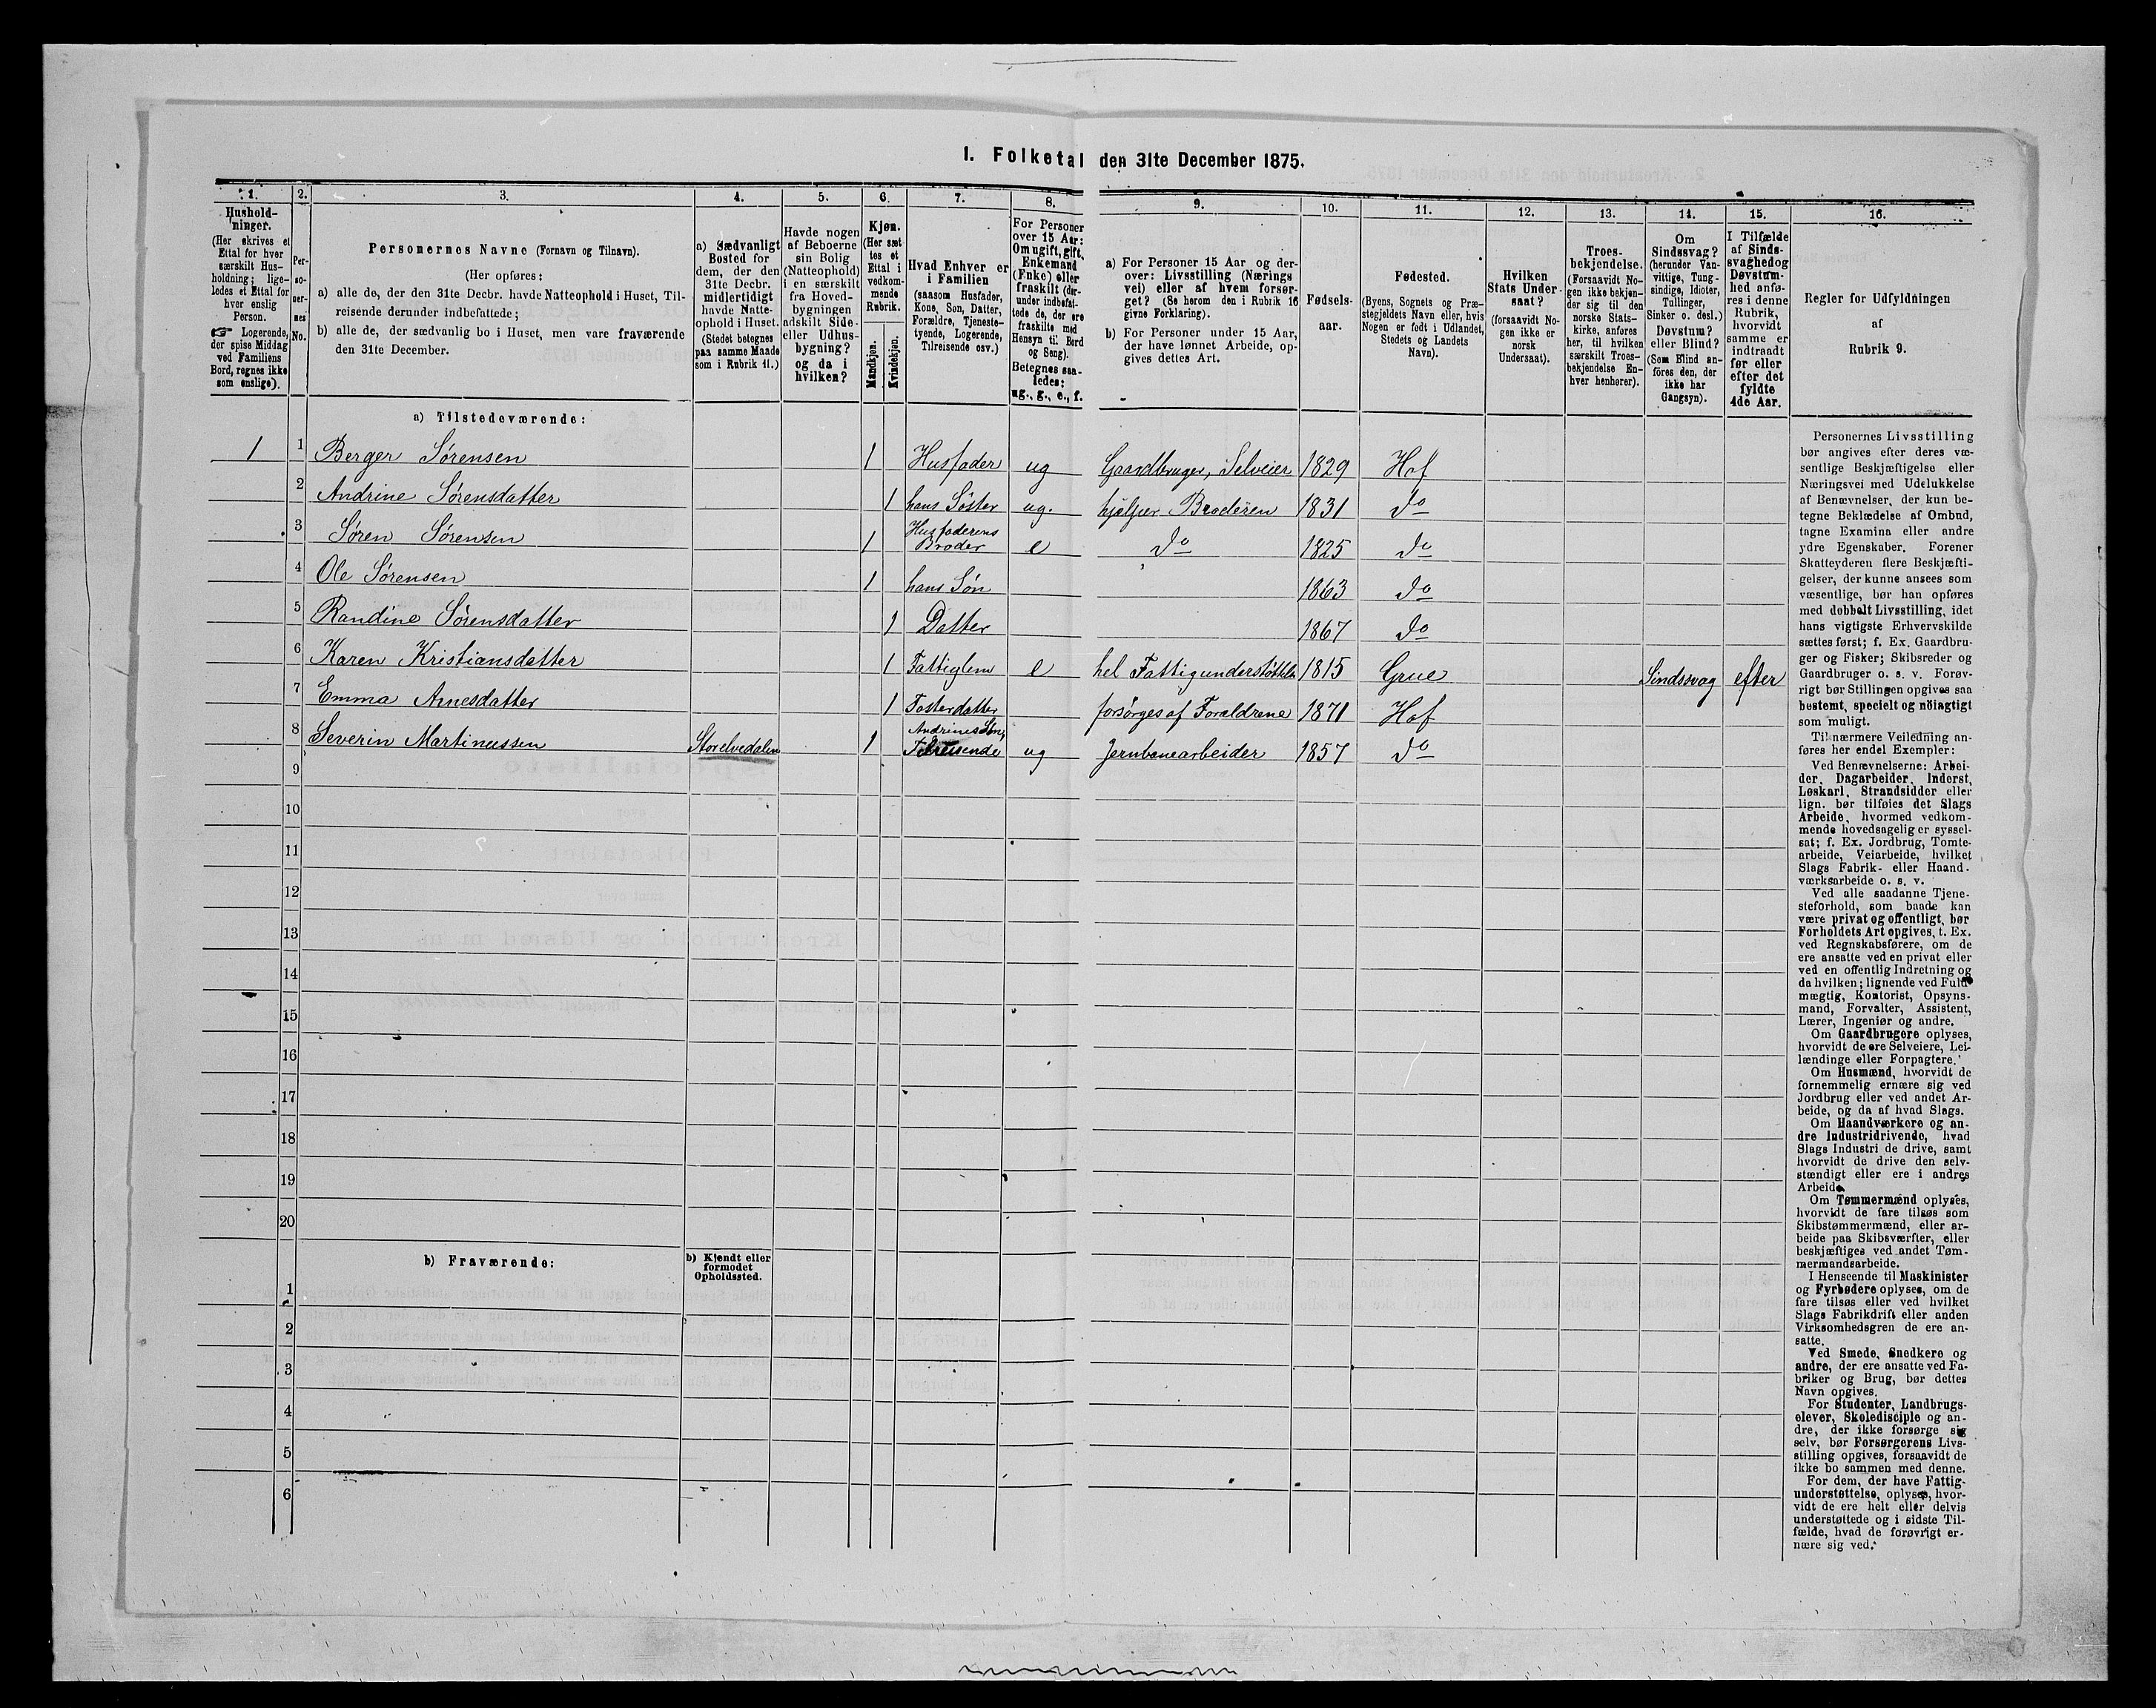 1. Folketal den 31te December 1875.
1. 2. 3. 4. 5. 6. 7. 8. 9. 10. 11. 12. 13. 14. 15. 16.
Hushold-
ninger.
(Her skrives et
Ettal for hver
særskilt Hus-
holdning; lige-
ledes et Ettal for
hver enslig
Person.
☛ Logerende,
der spise Middag
ved Familiens
Bord, regnes ikke
som enslige).
Per-
so-
ner-
nes
No.
Personernes Navne (Fornavn og Tilnavn).
(Her opføres:
a) alle de, der den 31te Decbr. havde Natteophold i Huset, Til-
reisende derunder indbefattede;
b) alle de, der sædvanlig bo i Huset, men vare fraværende
den 31te December.
a) Sædvanligt
Bosted for
dem, der den
31te Decbr.
midlertidigt
havde Natte-
ophold i Huset.
(Stedet betegnes
paa samme Maade
som i Rubrik 11.)
Havde nogen
af Beboerne
sin Bolig
(Natteophold)
i en særskilt
fra Hoved-
bygningen
adskilt Side-
eller Udhus-
bygning?
og da i
hvilken?
Kjøn.
(Her sæt
tes et
Ettal i
vedkom-
mende
Rubrik.
Mandkjøn.
Kvindekjøn.
Hvad Enhver er
i Familien
(saasom Husfader,
Kone, Søn, Datter,
Forældre, Tjeneste-
tyende, Logerende,
Tilreisende osv.)
For Personer
over 15 Aar:
Om ugift, gift,
Enkemand
(Enke) eller
fraskilt (der-
under indbefat-
tede de, der ere
fraskilte med
Hensyn til Bord
og Seng).
Betegnes saa-
ledes:
ug., g., e., f.
a) For Personer 15 Aar og der-
over: Livsstilling (Nærings
vei) eller af hvem forsør-
get? (Se herom den i Rubrik 16
givne Forklaring).
b) For Personer under 15 Aar,
der have lønnet Arbeide, op-
gives dettes Art.
Fødsels-
aar.
Fødested.
(Byens, Sognets og Præ-
stegjeldets Navn eller, hvis
Nogen er født i Udlandet,
Stedets og Landets
Navn).
Hvilken
Stats Under-
saat?
(forsaavidt No-
gen ikke er
norsk
Undersaat).
Troes-
bekjendelse.
(Forsaavidt No-
gen ikke bekjen-
der sig til den
norske Stats-
kirke, anføres
her, til hvilken
særskilt Troes-
bekjendelse En-
hver henhører).
Om
Sindssvag?
(herunder Van-
vittige, Tung-
sindige, Idioter,
Tullinger,
Sinker o. desl.)
Døvstum?
eller Blind?
(Som Blind an-
føres den, der
ikke har
Gangsyn).
I Tilfælde
af Sinds-
svaghed og
Døvstum-
hed anfø-
res i denne
Rubrik,
hvorvidt
samme er
indtraadt
før eller
efter det
fyldte
4de Aar.
Regler for Udfyldningen
af
Rubrik 9.
a) Tilstedeværende:
1 1 Berger Sørensen 1 Husfader ug Gaardbruger, Selveier 1829 Hof
2 Andrine Sørensdatter 1 hans Søster ug. hjælper Broderen 1831 do
3 Søren Sørensen 1 Husfaderens Broder e do 1825 do
4 Ole Sørensen 1 hans Søn 1863 do
5 Randine Sørensdatter 1 Datter 1867 do
6 Karen Kristiansdatter 1 Fattiglem e hel Fattigunderstøttelse 1815 Grue Sindssvag efter
7 Emma Arnesdatter 1 Fosterdatter forsørges af Forældrene 1871 Hof
8 Severin Martinussen Storelvedalen 1 Andrines Søn, Tilreisende ug Jernbanearbeider 1857 do
9
10
11
12
13
14
15
16
17
18
19
20
b) Fraværende:
b) Kjendt eller
formodet
Opholdssted.
1
2
3
4
5
6
Personernes Livsstilling
bør angives efter deres væ-
sentlige Beskjæftigelse eller
Næringsvei med Udelukkelse
af Benævnelser, der kun be-
tegne Beklædelse af Ombud,
tagne Examina eller andre
ydre Egenskaber. Forener
Skatteyderen flere Beskjæfti-
gelser, der kunne ansees som
væsentlige, bør han opføres
med dobbelt Livsstilling, idet
hans vigtigste Erhvervskilde
sættes først; f. Ex. Gaardbru-
ger og Fisker; Skibsreder og
Gaardbruger o. s. v. Forøv-
rigt bør Stillingen opgives saa
bestemt, specielt og nöiagtigt
som muligt.
Til nærmere Veiledning an-
føres her endel Exempler:
Ved Benævnelserne: Arbei-
der, Dagarbeider, Inderst,
Løskarl, Strandsidder eller
lign. bør tilføies det Slags
Arbeide, hvormed vedkom-
mende hovedsagelig er syssel-
sat; f. Ex. Jordbrug, Tomte-
arbeide, Veiarbeide, hvilket
Slags Fabrik- eller Haand-
værksarbeide o. s. v.
Ved alle saadanne Tjene-
steforhold, som baade kan
være privat og offentligt, bør
Forholdets Art opgives, t. Ex.
ved Regnskabsførere, om de
ere ansatte ved en privat eller
ved en offentlig Indretning og
da hvilken; lignende ved Fuld-
mægtig, Kontorist, Opsyns-
mand, Forvalter, Assistent,
Lærer, Ingeniør og andre.
Om Gaardbrugere oplyses,
hvorvidt de ere Selveiere, Lei-
lændinge eller Forpagtere.
Om Husmænd, hvorvidt de
fornemmelig ernære sig ved
Jordbrug eller ved andet Ar-
beide, og da af hvad Slags.
Om Haandværkere og an-
dre Industridrivende, hvad
Slags Industri de drive, samt
hvorvidt de drive den selv-
stændigt eller ere i andres
Arbeide.
Om Tømmermænd oplyses,
hvorvidt de fare tilsøs som
Skibstømmermænd, eller ar-
beide paa Skibsværfter, eller
beskjæftiges ved andet Tøm-
mermandsarbeide.
I Henseende til Maskinister
og Fyrbødere oplyses, om de
fare tilsøs eller ved hvilket
Slags Fabrikdrift eller anden
Virksomhedsgren de ere an-
satte.
Ved Smede, Snedkere og
andre, der ere ansatte ved Fa-
briker og Brug, bør dettes
Navn opgives.
For Studenter, Landbrugs-
elever, Skoledisciple og an-
dre, der ikke forsørge sig
selv, bør Forsørgerens Livs-
stilling opgives, forsaavidt de
ikke bo sammen med denne.
For dem, der have Fattig-
understøttelse, oplyses, hvor-
vidt de ere helt eller delvis
understøttede og i sidste Til-
fælde, hvad de forøvrigt er-
nære sig ved.